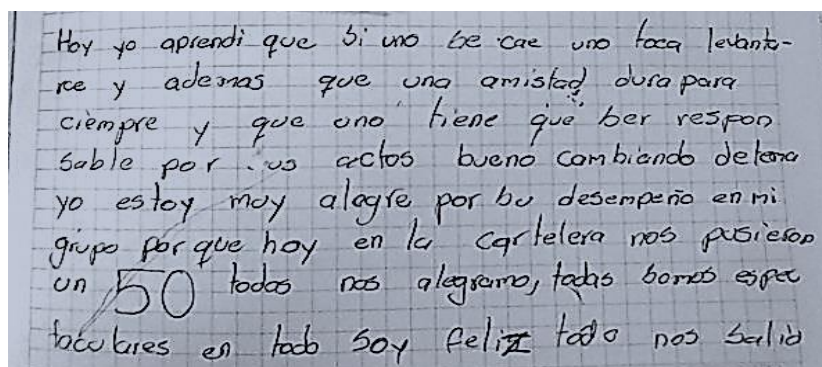 Hoy yo aprendi que si uno se cae uno toca levanta-
rce y ademas que una amistad dura para
ciempre y que uno tiene que ser respon
sable por sus actos bueno cambiando de tema
yo estoy muy alegre por su desempeño en mi
grupo por que hoy en la cartelera nos pusieron
un 50 todos nos alegramo, todas somos espec
taculares en todo soy feliz todo nos salio